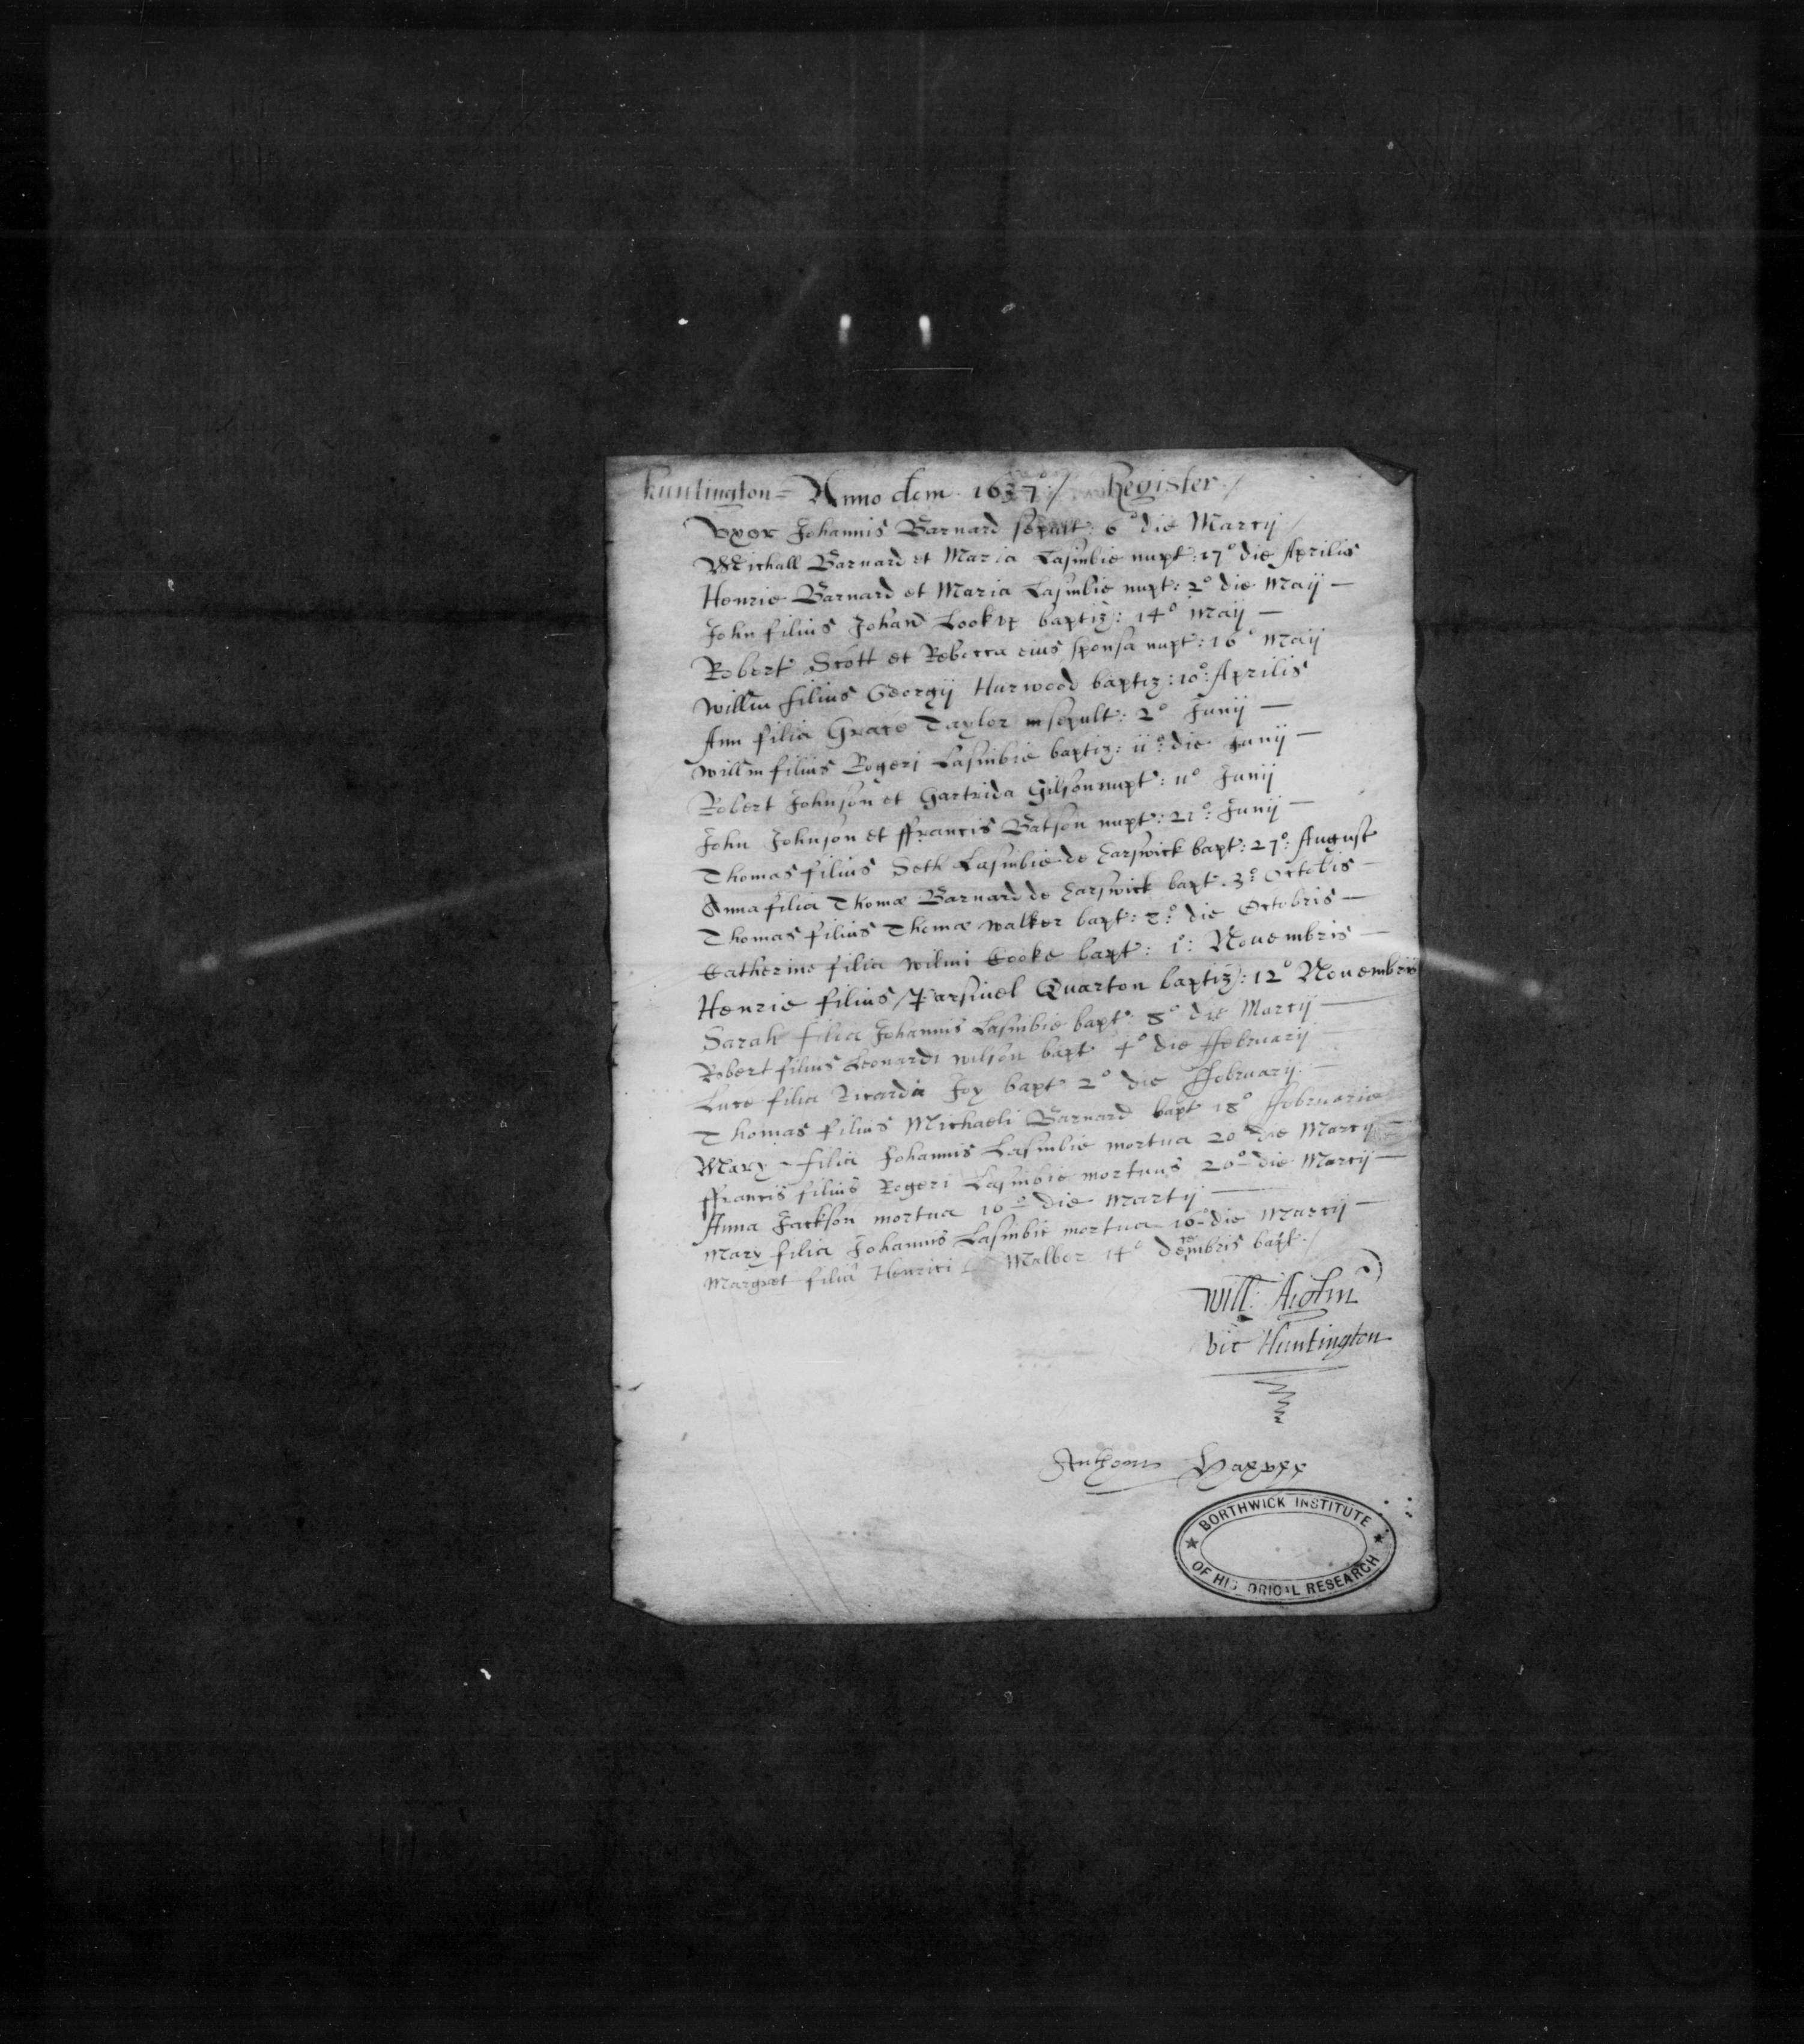 Huntington = Anno dom. 1637°:/ Register /
Vxor Johannis Barnard sepult: 6° die Martij /
Michall Barnard et Maria Lasinbie nupt: 17° die Aprilis
Henrie Barnard et Maria Lasinbie nupt: 2° die Maij —
John filius Johan Lookup baptiz: 14° Maij —
Robert Scott et Rebecca eius sponsa nupt: 16° Maij
Willm filius Georgij Harwood baptiz: 10°: Aprilis
Ann filia Grace Taylor sepult: 2° Junij —
Willm filius Rogeri Lasinbie baptiz: ii° die Junij —
Robert Johnson et Gartrida Gilson nupt: 11° Junij
John Johnson et ffrancis Batson nupt: 21°: Junij —
Thomas filius Seth Lasinbie de Earswick bapt: 27°: August
Anna filia Thomæ Barnard de Earswick bapt. 3°: Octobis —
Thomas filius Thomæ Walker bapt: 8°: die Octobris —
Catherine filia Wilmi Cooke bapt: 1°: Nouembris —
Henrie filius Parsiuel Quarton baptiz: 12° Nouembris
Sarah filia Johannis Lasinbie bapt: 8° die Martij —
Robert filius Leonardi Wilson bapt 4° die ffebruarij
Luce filia Ricardi Joy bapt 2° die ffebruarij. —
Thomas filius Michaeli Barnard bapt 18° ffebruarie
Mary filia Johannis Lasinbie mortua 20° die Martij —
ffrancis filius Rogeri Lasinbie mortuus 20° die Martij —
Anna Jackson mortua 10° die Martij —
Mary filia Johannis Lasinbie mortua 16° die Martij —
Margret filia Henrici Malber 14° Decembris bapt. /
Will: 
Vic Huntington
Anthony
BORTHWICK INSTITUTE
OF HISTORICAL RESEARCH